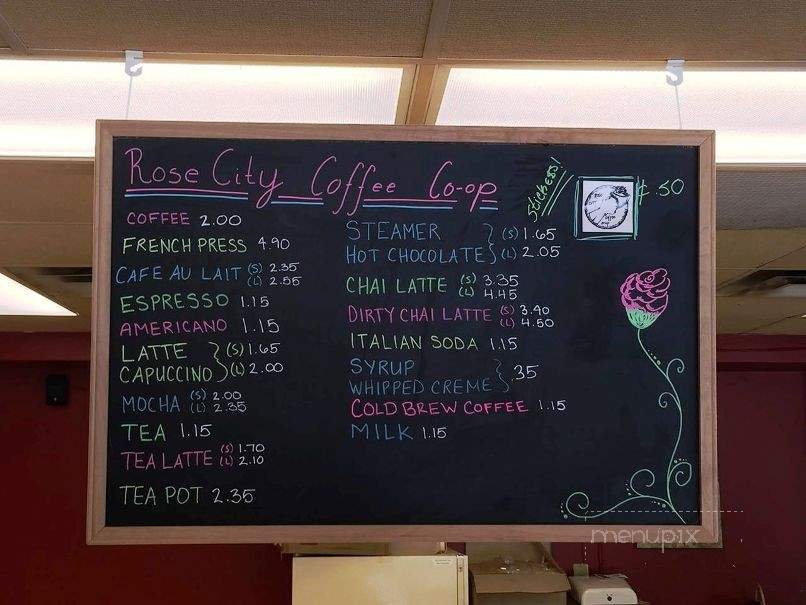 Rose City Coffee Co-op
stickers!
¢.50
COFFEE 2.00
FRENCH PRESS 4.90
CAFE AU LAIT (S) 2.35
(L) 2.55
ESPRESSO 1.15
AMERICANO 1.15
LATTE (S) 1.65
CAPUCCINO (L) 2.00
MOCHA (S) 2.00
(L) 2.35
TEA 1.15
TEA LATTE (S) 1.70
(L) 2.10
TEA POT 2.35
STEAMER (S) 1.65
HOT CHOCOLATE (L) 2.05
CHAI LATTE (S) 3.35
(L) 4.45
DIRTY CHAI LATTE (S) 3.40
(L) 4.50
ITALIAN SODA 1.15
SYRUP
WHIPPED CREME .35
COLD BREW COFFEE 1.15
MILK 1.15
menupix